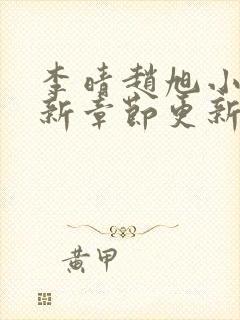 李晴趙旭小
新章節更新
黃甲